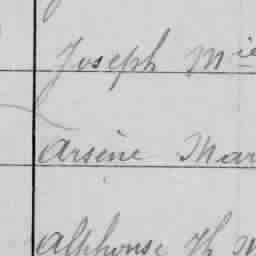 Joseph Mie
Arsène Mar
Alphonse Th M